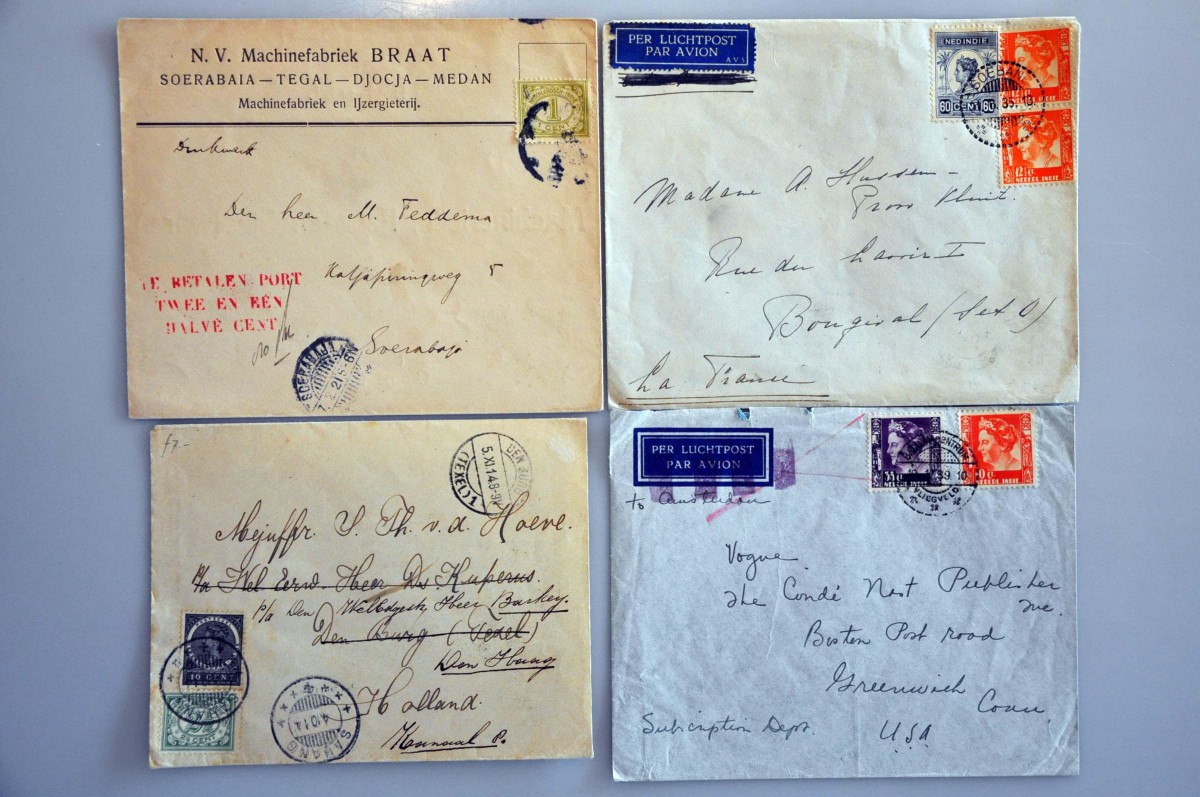 N. V. Machinefabriek BRAAT
SOERABAIA — TEGAL — DJOCJA — MEDAN
Machinefabriek en IJzergieterij.
1
CENT
Drukwerk
Den heer M. Feddema
5
Soerabaja
TE BETALEN PORT
TWEE EN EÉN
HALVE CENT
SOERABAJA
PER LUCHTPOST
PAR AVION
NED INDIE
60 CENT 60
12½ c
NEDERL INDIE
SOEBAN
35.10
Madame A.
Rue du
Bougival (Set O)
La France
f7.-
DEN BURG
(TEXEL)
5.XI.14.8-9V
Mejuffr. S. Th. v. d. Hoeve.
p/a Wel Eerw. Heer Ds Kuperus.
p/a Den WelEdgestr. Heer Barkey.
Den Burg (Texel)
Den Haag
Holland.
10 CENT
2½ CENT
SABANG
4.10.14
PER LUCHTPOST
PAR AVION
to Amsterdam
NEDERL INDIE
NEDERL INDIE
VLIEGVELD
Vogue
The Condé Nast Publisher
Inc.
Boston Post road
Greenwich
Conn.
USA
Subscription Dept.